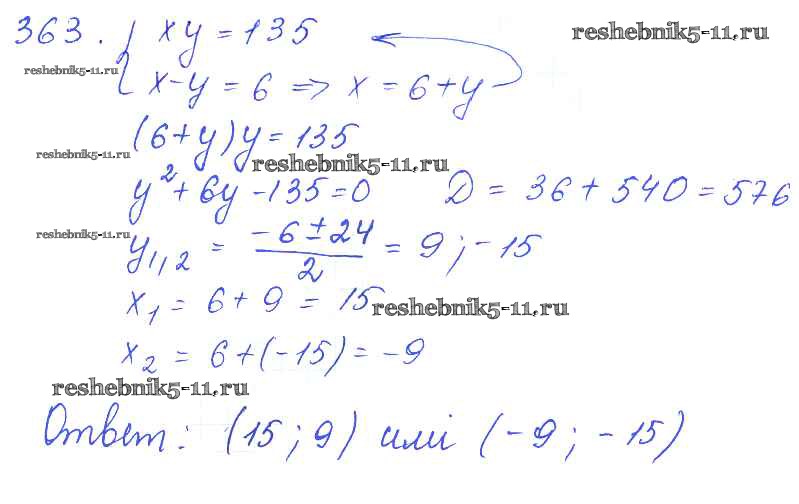 363. { xy = 135 reshebnik5-11.ru
reshebnik5-11.ru
x-y = 6 => x = 6+y
(6+y)y = 135
reshebnik5-11.ru reshebnik5-11.ru
y² + 6y - 135 = 0 D = 36 + 540 = 576
reshebnik5-11.ru
y₁,₂ = (-6 ± 24)/2 = 9 ; -15
x₁ = 6 + 9 = 15 reshebnik5-11.ru
x₂ = 6 + (-15) = -9
reshebnik5-11.ru
Ответ: (15 ; 9) или (-9 ; -15)